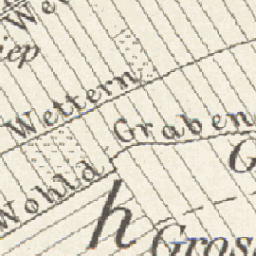 We
iep
Wettern
Graben
G
Wohld
h
Gros